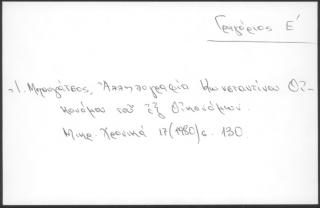 Γρηγόριος Ε΄
Ι. Μπουγάτσος, Ἀλληλογραφία Κωνσταντίνου Οἰ-
κονόμου τοῦ ἐξ Οἰκονόμων.
Μικρ. Χρονικά 17 (1980) σ. 130.